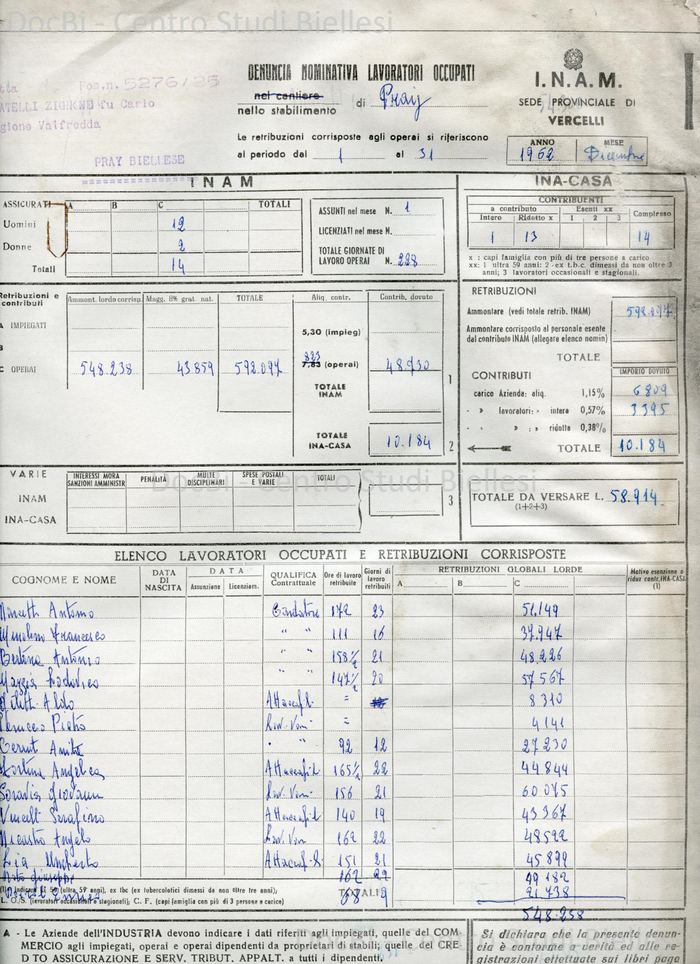 DocBi - Centro Studi Biellesi
Pos.n. 5276/25
FRATELLI ZIGNONE fu Carlo
Regione Valfredda
PRAY BIELLESE
DENUNCIA NOMINATIVA LAVORATORI OCCUPATI
nel cantiere
nello stabilimento di Pray
Le retribuzioni corrisposte agli operai si riferiscono
al periodo dal 1 al 31
I.N.A.M.
SEDE PROVINCIALE DI
VERCELLI
ANNO MESE
1962 Dicembre
INAM
ASSICURATI A B C TOTALI
Uomini 12
Donne 2
Totali 14
ASSUNTI nel mese N. 1
LICENZIATI nel mese N.
TOTALE GIORNATE DI
LAVORO OPERAI N. 228
INA-CASA
CONTRIBUENTI
a contributo Esenti xx Complesso
Intero Ridotto x 1 2 3
1 13 14
x : capi famiglia con più di tre persone a carico
xx: 1 ultra 59 anni; 2 - ex t.b.c. dimessi da non oltre 3
anni; 3 lavoratori occasionali e stagionali.
Retribuzioni e
contributi
Ammont. lordo corrisp. Magg. 8% grat. nat. TOTALE Aliq. contr. Contrib. dovuto
A IMPIEGATI 5,30 (impieg)
B
C OPERAI 548.238 43.859 592.097 8,23 7,83 (operai) 48.730
TOTALE
INAM 1
TOTALE
INA-CASA 10.184 2
RETRIBUZIONI
Ammontare (vedi totale retrib. INAM) 592.097
Ammontare corrisposto al personale esente
dal contributo INAM (allegare elenco nomin)
TOTALE
CONTRIBUTI IMPORTO DOVUTO
carico Azienda: aliq. 1,15% 6809
» lavoratori: » intera 0,57% 3395
» » : » ridotta 0,38%
TOTALE 10.184
VARIE
INTERESSI MORA
SANZIONI AMMINISTR PENALITÀ MULTE
DISCIPLINARI SPESE POSTALI
E VARIE TOTALI
INAM
INA-CASA
3
DocBi - Centro Studi Biellesi
TOTALE DA VERSARE L. 58.914
(1+2+3)
ELENCO LAVORATORI OCCUPATI E RETRIBUZIONI CORRISPOSTE
COGNOME E NOME DATA
DI
NASCITA DATA
Assunzione Licenziam. QUALIFICA
Contrattuale Ore di lavoro
retribuite Giorni di
lavoro
retribuiti RETRIBUZIONI GLOBALI LORDE
A B C Motivo esenzione o
riduz contr. INA-CASA
(1)
Antonio 172 23 51.149
Francesco " " 111 16 37.947
Bertona Antonio " " 158½ 21 48.226
Lodovico " " 147½ 20 57.567
Aldo Attaccafili = 8310
Pietro = 4141
Cerruti " 92 12 27230
Fortina Angelica Attaccafili 165½ 22 44844
Giovanni 156 21 60.075
Serafino Attaccafili 140 19 43367
Angelo 162 22 48522
Umberto Attaccafili 151 21 45.899
Giuseppe 162 22 49182
68 9 21738
(1) Indicare U 59 (ultra, 59 anni), ex tbc (ex tubercolotici dimessi da non oltre tre anni);
L. O. S. (lavoratori occasionali e stagionali); C. F. (capi famiglia con più di 3 persone a carico)
TOTALI
548.238
A - Le Aziende dell'INDUSTRIA devono indicare i dati riferiti agli impiegati, quelle del COM-
MERCIO agli impiegati, operai e operai dipendenti da proprietari di stabili; quelle del CRE
D TO ASSICURAZIONE E SERV. TRIBUT. APPALT. a tutti i dipendenti.
Si dichiara che la presente denun-
cia è conforme a verità ed alle re-
gistrazioni effettuate sui libri paga